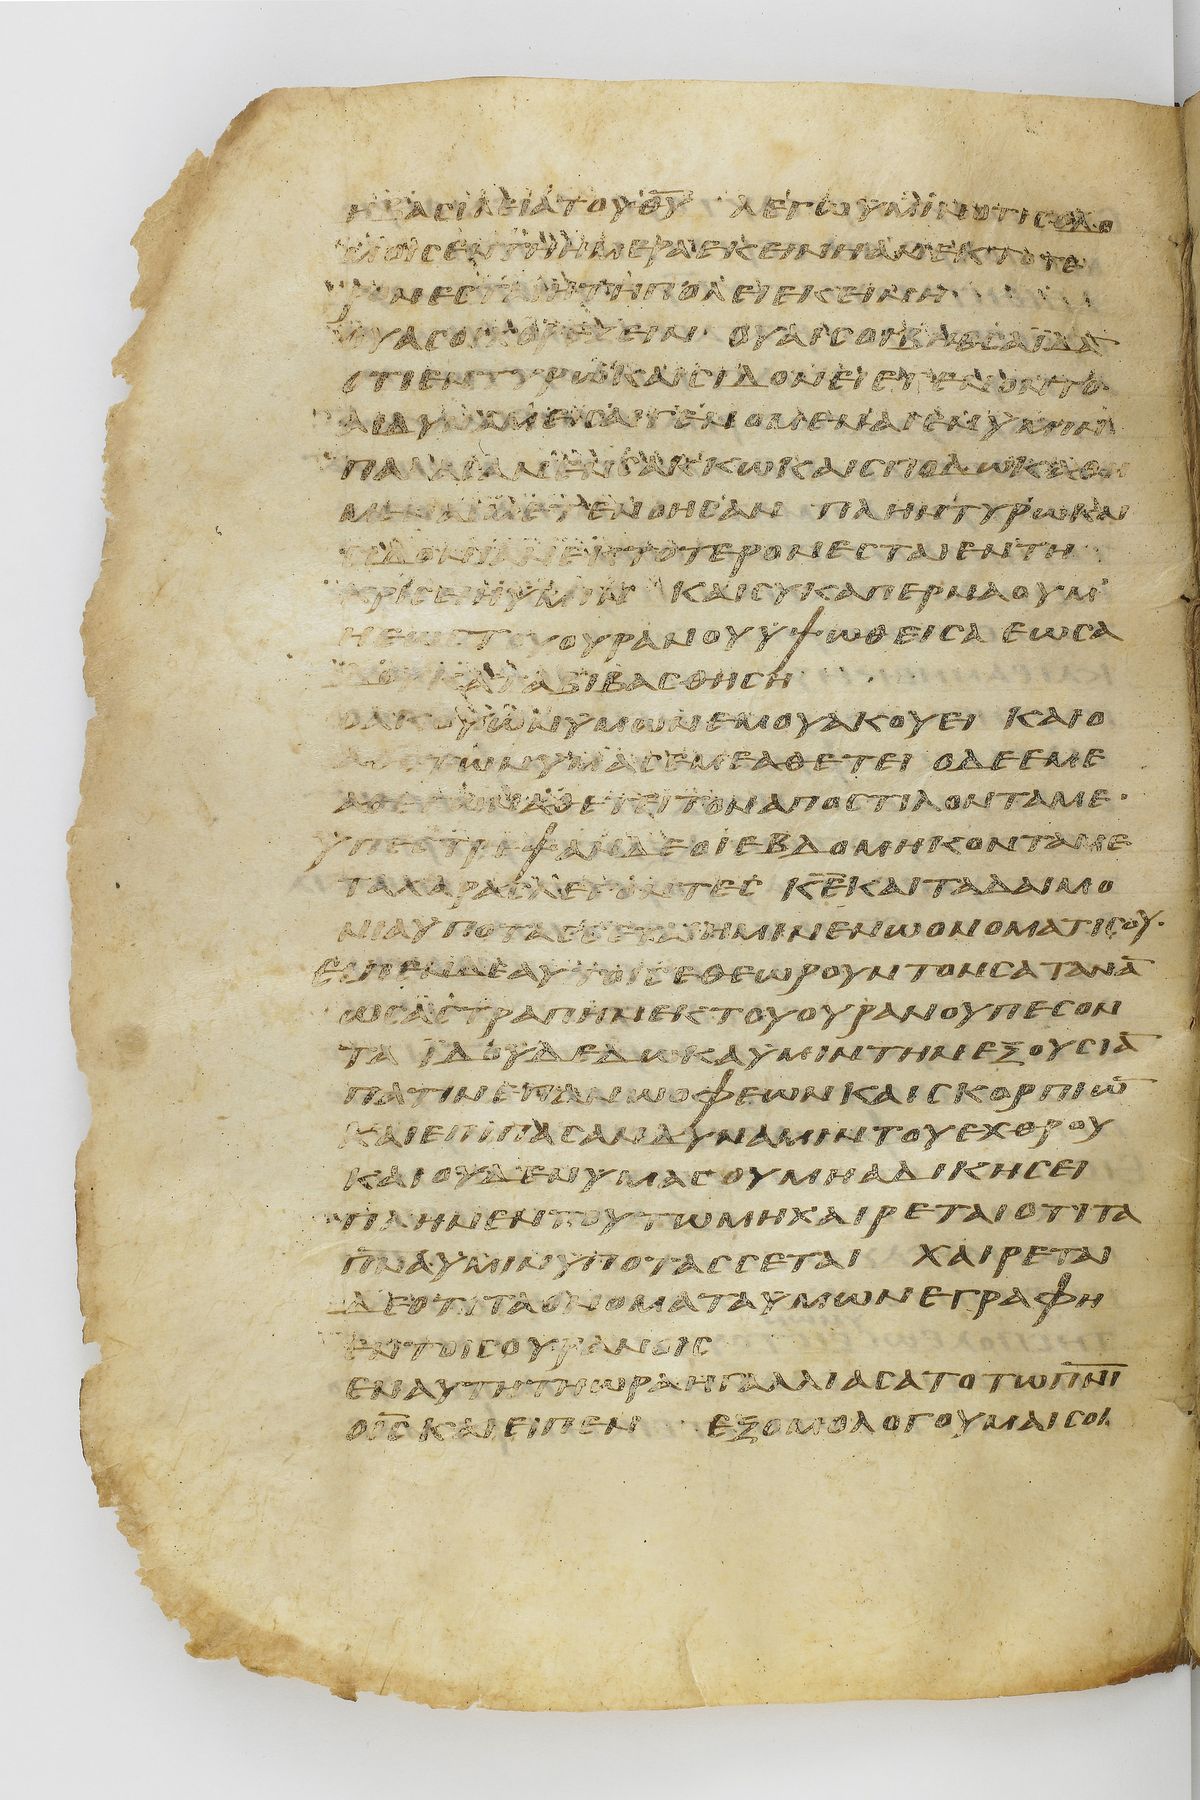 ΗΒΑϹΙΛΕΙΑΤΟΥΘ̅Υ̅ ΛΕΓΩΥΜΙΝΟΤΙϹΟΔΟ
ΜΟΙϹΕΝΤΗΗΜΕΡΑΕΚΕΙΝΗΑΝΕΚΤΟΤΕ
ΡΟΝΕϹΤΑΙΗΤΗΠΟΛΕΙΕΚΕΙΝΗ
ΟΥΑΙϹΟΙΧΟΡΟΖΕΙΝ ΟΥΑΙϹΟΙΒΗΘϹΑΙΔΑ
ΟΤΙΕΝΤΥΡΩΚΑΙϹΙΔΟΝΕΙΕΓΕΝΟΝΤΟ
ΑΙΔΥΝΑΜΕΙϹΑΙΓΕΝΟΜΕΝΑΙΕΝΥΜΙΝ
ΠΑΛΑΙΑΝΕΝϹΑΚΚΩΚΑΙϹΠΟΔΩΚΑΘΗ
ΜΕΝΑΙΜΕΤΕΝΟΗϹΑΝ ΠΛΗΝΤΥΡΩΚΑΙ
ϹΙΔΟΝΙΑΝΕΚΤΟΤΕΡΟΝΕϹΤΑΙΕΝΤΗ
ΚΡΙϹΕΙΗΥΜΙΝ ΚΑΙϹΥΚΑΠΕΡΝΑΟΥΜ
ΗΕΩϹΤΟΥΟΥΡΑΝΟΥΥΨΩΘΕΙϹΑΕΩϹΑ
ΔΟΥΚΑΤΑΒΙΒΑϹΘΗϹΗ
ΟΑΚΟΥΩΝΥΜΩΝΕΜΟΥΑΚΟΥΕΙ ΚΑΙΟ
ΑΘΕΤΩΝΥΜΑϹΕΜΕΑΘΕΤΕΙ ΟΔΕΕΜΕ
ΑΘΕΤΩΝΑΘΕΤΕΙΤΟΝΑΠΟϹΤΙΛΟΝΤΑΜΕ·
ΥΠΕϹΤΡΕΨΑΝΔΕΟΙΕΒΔΟΜΗΚΟΝΤΑΜΕ
ΤΑΧΑΡΑϹΛΕΓΟΝΤΕϹ Κ̅Ε̅ΚΑΙΤΑΔΑΙΜΟ
ΝΙΑΥΠΟΤΑϹϹΕΤΑΙΗΜΙΝΕΝΩΟΝΟΜΑΤΙϹΟΥ·
ΕΙΠΕΝΔΕΑΥΤΟΙϹΕΘΕΩΡΟΥΝΤΟΝϹΑΤΑΝΑ̅
ΩϹΑϹΤΡΑΠΗΝΕΚΤΟΥΟΥΡΑΝΟΥΠΕϹΟΝ
ΤΑ ΙΔΟΥΔΕΔΩΚΑΥΜΙΝΤΗΝΕΞΟΥϹΙΑ̅
ΠΑΤΙΝΕΠΑΝΩΟΦΕΩΝΚΑΙϹΚΟΡΠΙΩ̅
ΚΑΙΕΠΙΠΑϹΑΝΔΥΝΑΜΙΝΤΟΥΕΧΘΡΟΥ
ΚΑΙΟΥΔΕΝΥΜΑϹΟΥΜΗΑΔΙΚΗϹΕΙ
ΠΛΗΝΕΝΤΟΥΤΩΜΗΧΑΙΡΕΤΑΙΟΤΙΤΑ
Π̅Ν̅Α̅ΥΜΙΝΥΠΟΤΑϹϹΕΤΑΙ ΧΑΙΡΕΤΑΙ
ΔΕΟΤΙΤΑΟΝΟΜΑΤΑΥΜΩΝΕΓΡΑΦΗ
ΕΝΤΟΙϹΟΥΡΑΝΟΙϹ
ΕΝΑΥΤΗΤΗΩΡΑΗΓΑΛΛΙΑϹΑΤΟΤΩΠ̅Ν̅Ι̅
ΟΙ̅Ϲ̅ΚΑΙΕΙΠΕΝ ΕΞΟΜΟΛΟΓΟΥΜΑΙϹΟΙ